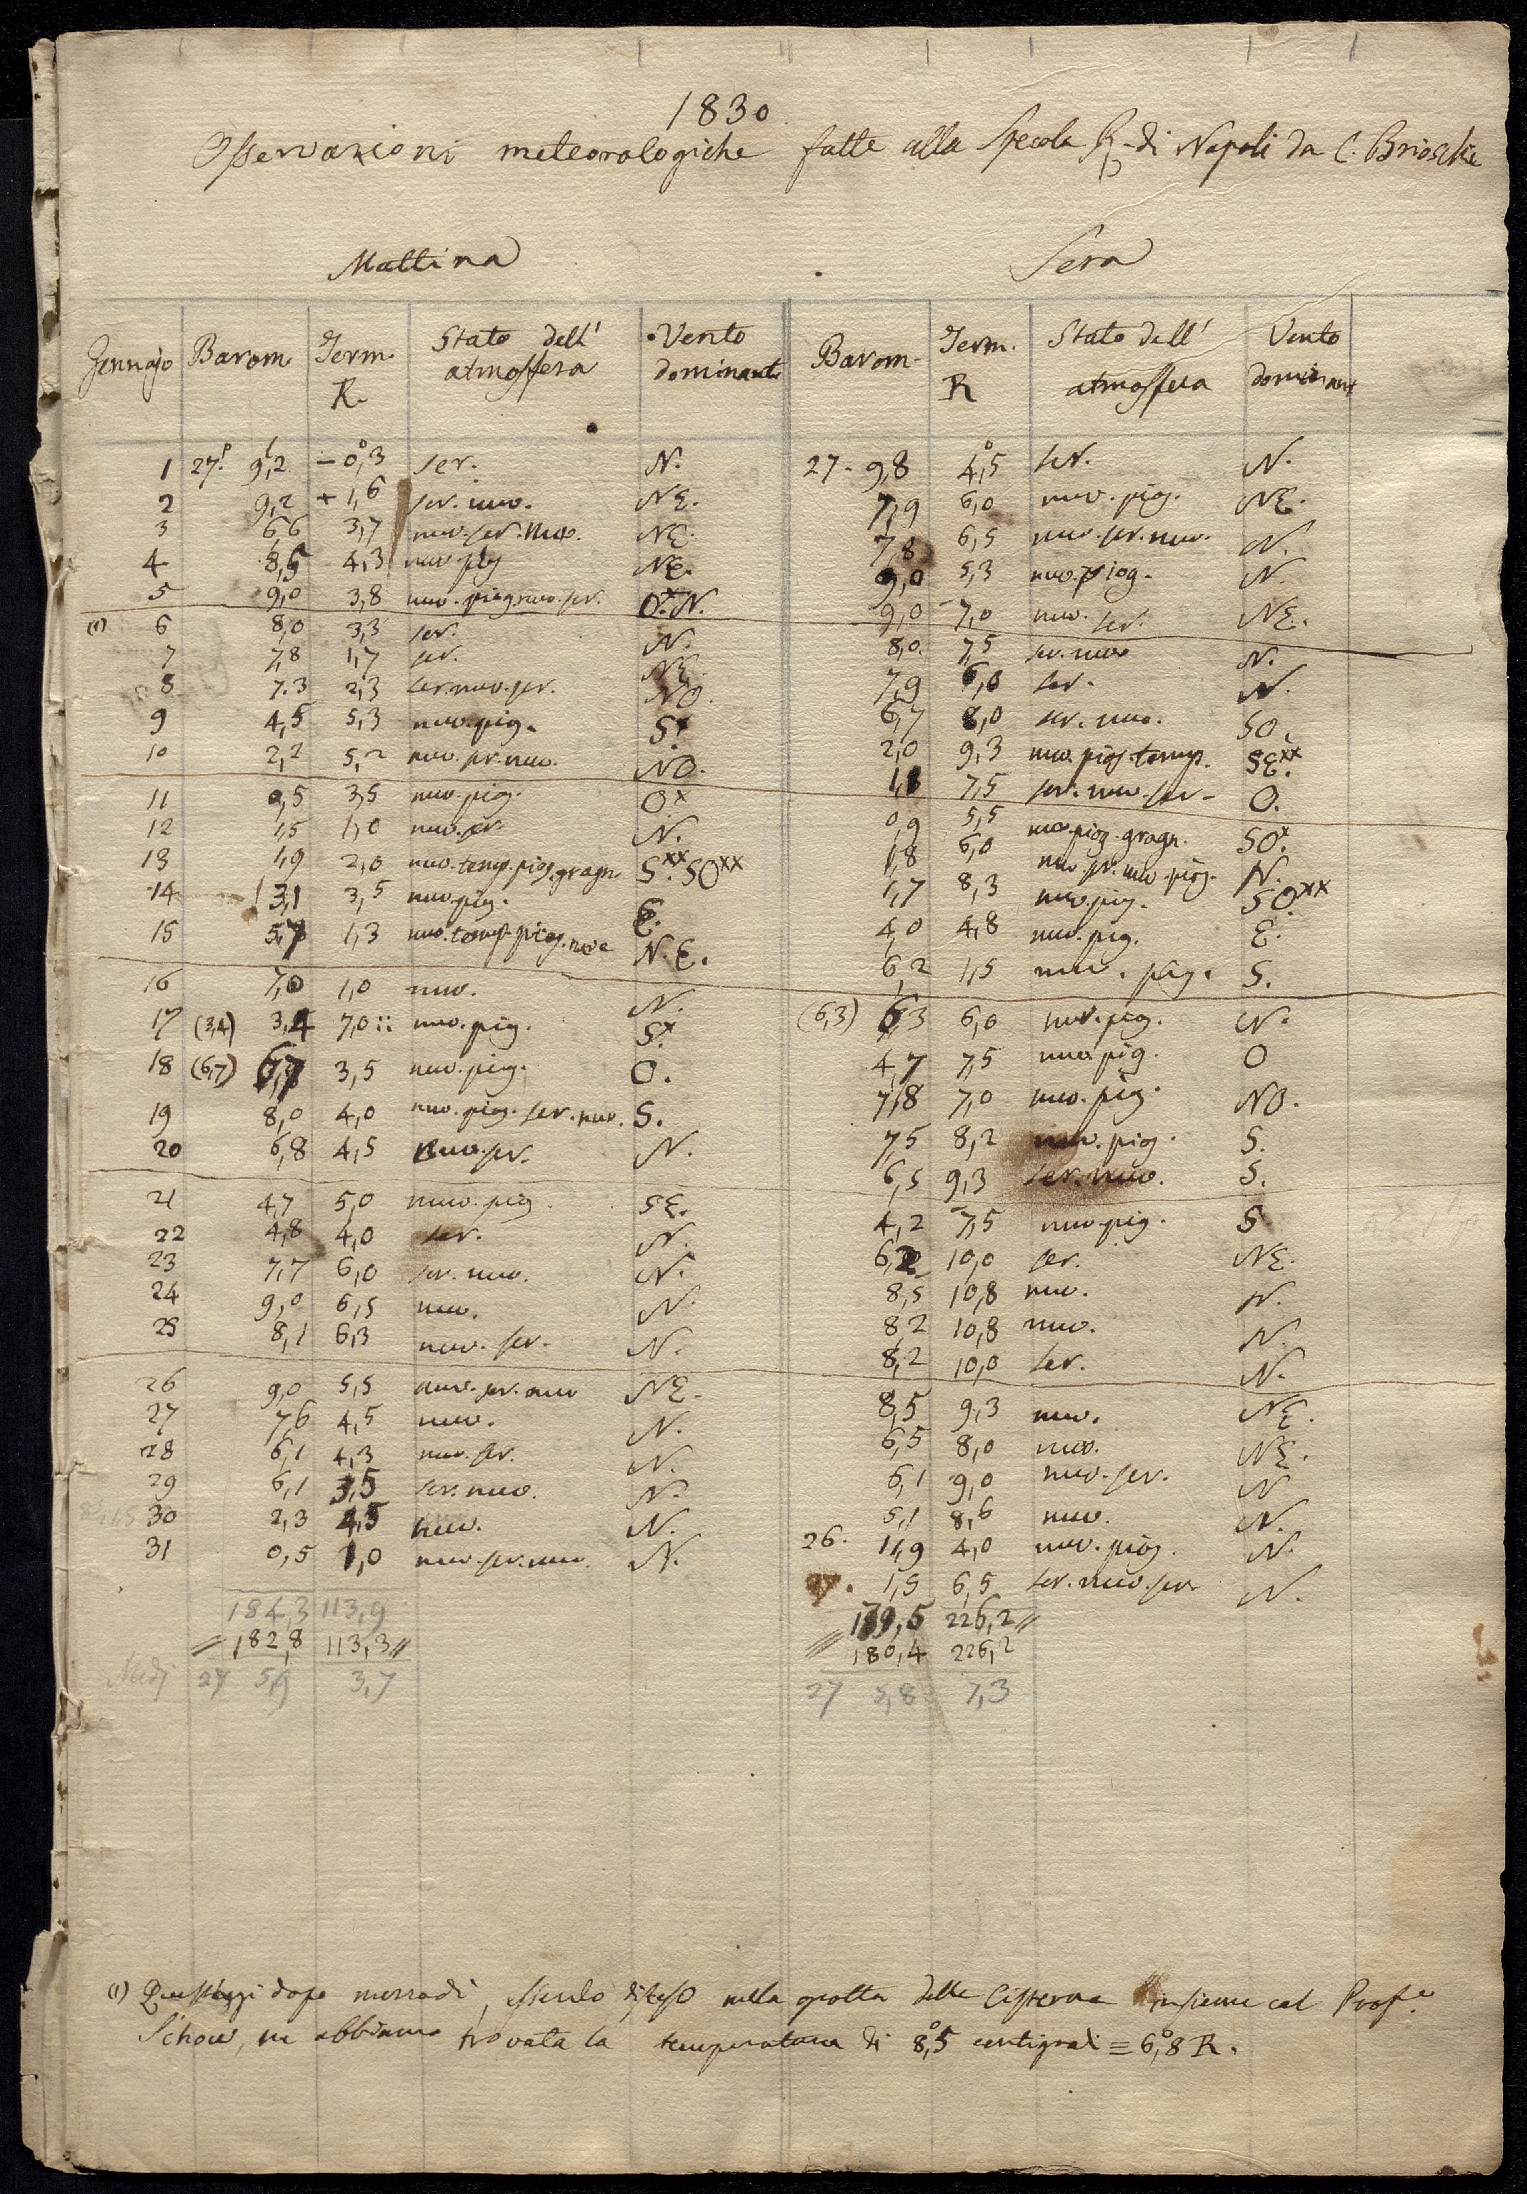 1830
Osservazioni meteorologiche fatte alla Specola R. di Napoli da C. Brioschi
Mattina Sera
Gennajo Barom. Term. R. Stato dell' atmosfera Vento dominante Barom. Term. R Stato dell' atmosfera Vento dominant
1 27.p 9,l2 −0,°3 ser. N. 27. 9,8 4,°5 ser. N.
2 9,2 +1,6 ser. nuv. NE. 7,9 6,0 nuv. piog. NE.
3 6,6 3,7 nuv. ser. nuv. NE. 7,8 6,5 nuv. ser. nuv. N.
4 8,5 4,3 nuv. piog NE. 9,0 5,3 nuv. piog. N.
5 9,0 3,8 nuv. piog nuv. ser. O.x N. 9,0 7,0 nuv. ser. NE.
(1) 6 8,0 3,3 ser. N. 8,0. 7,5 ser. nuv N.
7 7,8 1,7 ser. NE. 7,9 6,0 ser. N.
8 7.3 2,3 ser. nuv. ser. NO. 6,7 8,0 ser. nuv. SO.
9 4,5 5,3 nuv. piog. S.x 2,0 9,3 nuv. piog. temp. SE.xx
10 2,2 5,2 nuv. ser. nuv. NO. 1,8 7,5 ser. nuv. ser. O.
11 0,5 3,5 nuv. piog. Ox 0,9 5,5 nuv. piog. gragn. SO.x
12 1,5 1,0 nuv. ser. N. 1,8 6,0 nuv. ser. nuv. piog. N.
13 1,9 2,0 nuv. temp. piog. gragn S.xx SOxx 1,7 8,3 nuv. piog. SO.xx
14 3,1 3,5 nuv. piog. E. 4,0 4,8 nuv. piog. E.
15 5,7 1,3 nuv. temp. piog. neve N.E. 6,2 1,5 nuv. piog. S.
16 7,0 1,0 nuv. N. (6,3) 6,3 6,0 nuv. piog. N.
17 (3,4) 3,4 7,0:: nuv. piog. S.x 4,7 7,5 nuv. piog. O
18 (6,7) 6,7 3,5 nuv. piog. O. 7,8 7,0 nuv. piog. NO.
19 8,0 4,0 nuv. piog. ser. nuv. S. 7,5 8,2 nuv. piog. S.
20 6,8 4,5 nuv. ser. N. 6,5 9,3 ser. nuv. S.
21 4,7 5,0 nuv. piog. SE. 4,2 7,5 nuv. piog. S
22 4,8 4,0 ser. N. 6,2 10,0 ser. NE.
23 7,7 6,0 ser. nuv. N. 8,5 10,8 nuv. N.
24 9,0 6,5 nuv. N. 8,2 10,8 nuv. N.
25 8,1 6,3 nuv. ser. N. 8,2 10,0 ser. N.
26 9,0 5,5 nuv. ser. nuv NE. 8,5 9,3 nuv. NE.
27 7,6 4,5 nuv. N. 6,5 8,0 nuv. NE.
28 6,1 4,3 nuv. ser. N. 6,1 9,0 nuv. ser. N
29 6,1 3,5 ser. nuv. N. 5,1 8,6 nuv. N.
30 2,3 4,5 nuv. N. 26. 11,9 4,0 nuv. piog. N.
31 0,5 1,0 nuv. ser. nuv. N. 27. 1,5 6,5 ser. nuv. ser N.
184,3 113,9 179,5 226,2 //
// 182,8 113,3 // // 180,4 226,2
Medj 27 5,9 3,7 27 5,8 7,3
(1) Quest'oggi dopo mezzodì, essendo disceso nella grotta delle Cisterne insieme col Prof.e
Schow, vi abbiamo trovata la temperatura di 8,°5 centigradi = 6,°8 R.